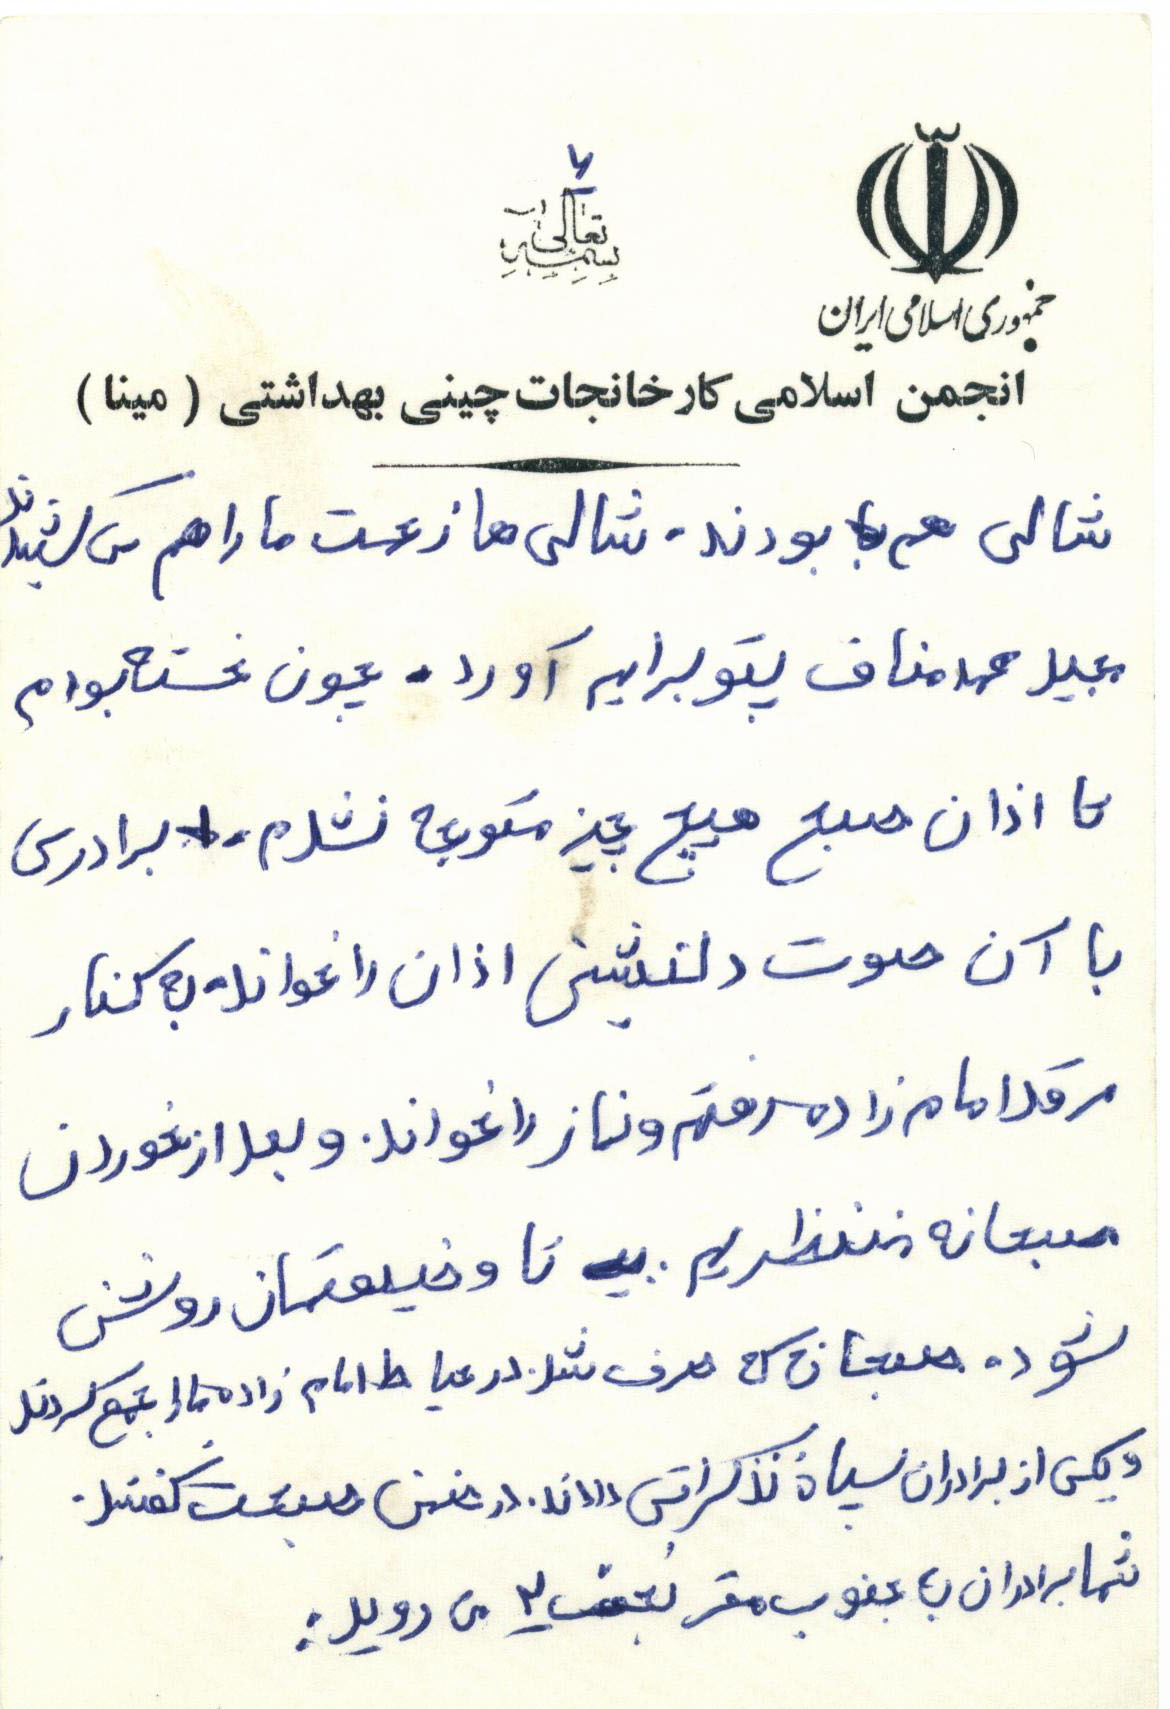 ۶
بسمه تعالی
جمهوری اسلامی ایران
انجمن اسلامی کارخانجات چینی بهداشتی ( مینا )
شمالی هم بودند. شمالی ها زحمت ما را هم می کشیدند
مجید محمد مناف پتو برایم آورد. چون خسته بودم
تا اذان صبح هیچ چیز متوجه نشدم. برادری
با آن صوت دلنشینی اذان را خواند. به کنار
مرقد امام زاده رفتم و نماز را خواندم. و بعد از خوردن
صبحانه منتظریم. تا وضیعتمان روشن
شود. صبحانه که صرف شد. در حیاط امام زاده ما را جمع کردند
و یکی از برادران سپاه تذکراتی دادند. در ضمن صحبت گفتند.
شما برادران به جنوب مقر نجف ۲ می روید.